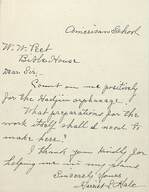 American School
W. W. Peet
Bible House
Dear Sir:-
Count on me positively
for the Hadjin orphanage.
What preparations for the
work itself shall I need to
make here?
I thank you kindly for
helping me in my plans
Sincerely Yours
Harriet L. Hale